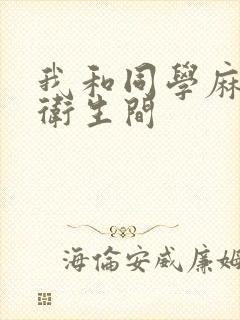 我和同學麻
衛生間
海倫安威廉姆